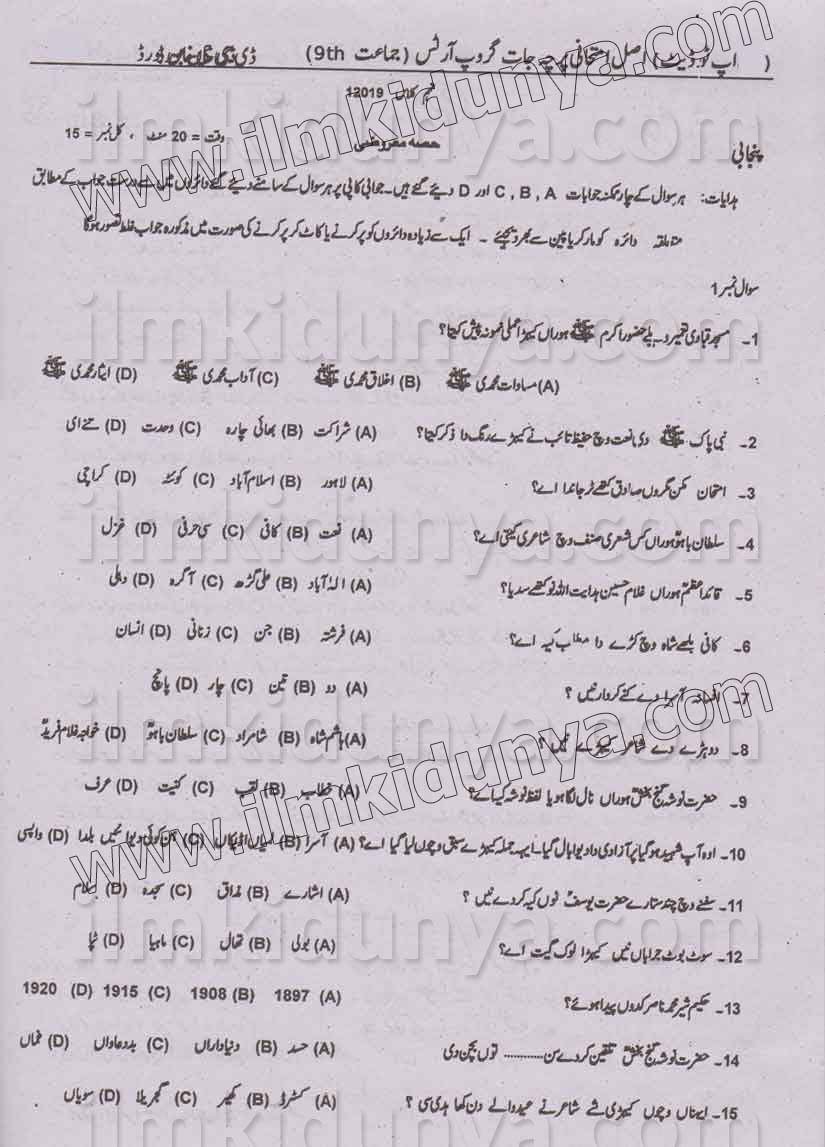 ( اپ ٹو ڈیٹ ) اصل امتحانی پرچہ جات گروپ آرٹس ( جماعت 9th ) ڈی جی خان بورڈ
12019
پنجابی حصہ معروضی وقت = 20 منٹ ، کل نمبر = 15
ہدایات: ہر سوال کے چار ممکنہ جوابات C , B , A اور D دیئے گئے ہیں۔ جوابی کاپی پر ہر سوال کے سامنے دیئے گئے دائروں میں سے درست جواب کے مطابق
متعلقہ دائرہ کو مارکر یا پین سے بھر دیجئے ۔ ایک سے زیادہ دائروں کو پر کرنے یا کاٹ کر پر کرنے کی صورت میں مذکورہ جواب غلط تصور ہوگا
سوال نمبر 1
1۔ مسجد قبا دی تعمیر ویلے حضور اکرم ﷺ ہوراں کیہڑا عملی نمونہ پیش کیتا؟
(A) مساوات محمدی ﷺ (B) اخلاق محمدی ﷺ (C) آداب محمدی ﷺ (D) ایثار محمدی ﷺ
2۔ نبی پاک ﷺ دی نعت وچ حفیظ تائب نے کیہڑے رنگ دا ذکر کیتا؟ (A) شراکت (B) بھائی چارہ (C) وحدت (D)
3۔ امتحان مکن مگروں صادق کتھے ٹر جاندا اے؟ (A) لاہور (B) اسلام آباد (C) کوئٹہ (D) کراچی
4۔ سلطان باہوؒ ہوراں کس شعری صنف وچ شاعری کیتی اے؟ (A) نعت (B) کافی (C) سی حرفی (D) غزل
5۔ قائداعظمؒ ہوراں غلام حسین ہدایت اللہ نوں کتھے سدیا؟ (A) الہٰ آباد (B) علی گڑھ (C) آگرہ (D) دہلی
6۔ کافی بلھے شاہ وچ کڑے دا مطلب کیہ اے؟ (A) فرشتہ (B) جن (C) زنانی (D) انسان
7۔ افسانہ آسرا دے کنے کردار نیں ؟ (A) دو (B) تین (C) چار (D) پانچ
8۔ دوہڑے دے شاعر کیہڑے نیں ؟ (A) ہاشم شاہ (B) شاہ مراد (C) سلطان باہوؒ (D) خواجہ غلام فریدؒ
9۔ حضرت نوشہ گنج بخشؒ ہوراں نال لگا ہویا لفظ نوشہ کیہ اے؟ (A) خطاب (B) لقب (C) کنیت (D) عرف
10۔ اوہ آپ شہید ہو گیا پر آزادی دا دیوا بال گیا۔ ایہہ جملہ کیہڑے سبق وچوں لیا گیا اے؟ (A) آسرا (B) لمیاں اڈیکاں (C) ہن کوئی دیوا نئیں بلدا (D) واپسی
11۔ سفنے وچ چند ستارے حضرت یوسفؑ نوں کیہ کردے نیں ؟ (A) اشارے (B) مذاق (C) سجدہ (D) سلام
12۔ سوٹ بوٹ جراباں نیں کیہڑا لوک گیت اے؟ (A) بولی (B) تھال (C) ماہیا (D) ٹپا
13۔ حکیم شیر محمد ناصر کدوں پیدا ہوئے؟ (A) 1897 (B) 1908 (C) 1915 (D) 1920
14۔ حضرت نوشہ گنج بخشؒ تلقین کردے سن ........... توں بچن دی (A) حسد (B) دنیاداراں (C) بددعاواں (D) غماں
15۔ ایہناں وچوں کیہڑی شے شاعر نے عید والے دن کھاہدی سی ؟ (A) کسٹرڈ (B) کھیر (C) گجریلا (D) سویاں
www.ilmkidunya.com
www.ilmkidunya.com
ilmkidunya.com
ilmkidunya.com
ilmkidunya.com
ilmkidunya.com
ilmkidunya.com
ilmkidunya.com